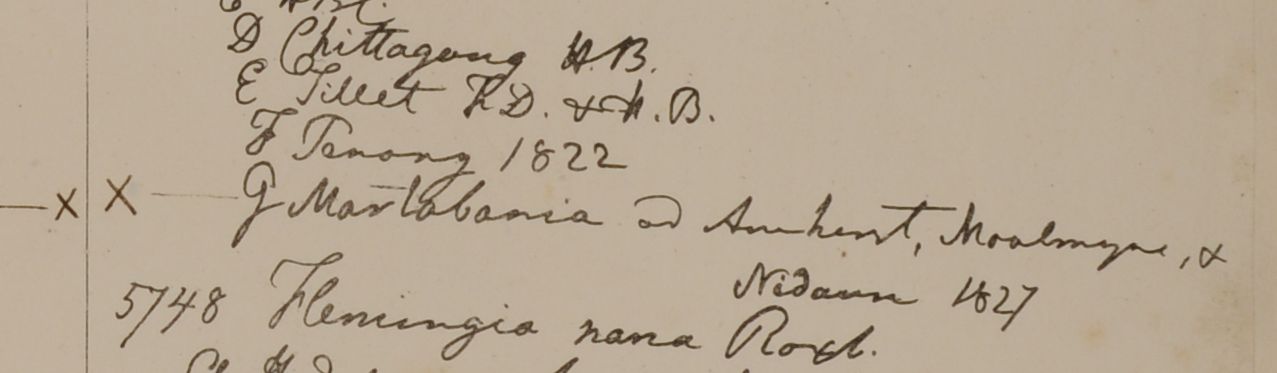 D Chittagong H.B.
E Sillet F.D. & H.B.
F Penang 1822
x X G Martabania ad Amherst, Moalmyne, &
Nidaun 1827
5748 Flemingia nana Roxb.